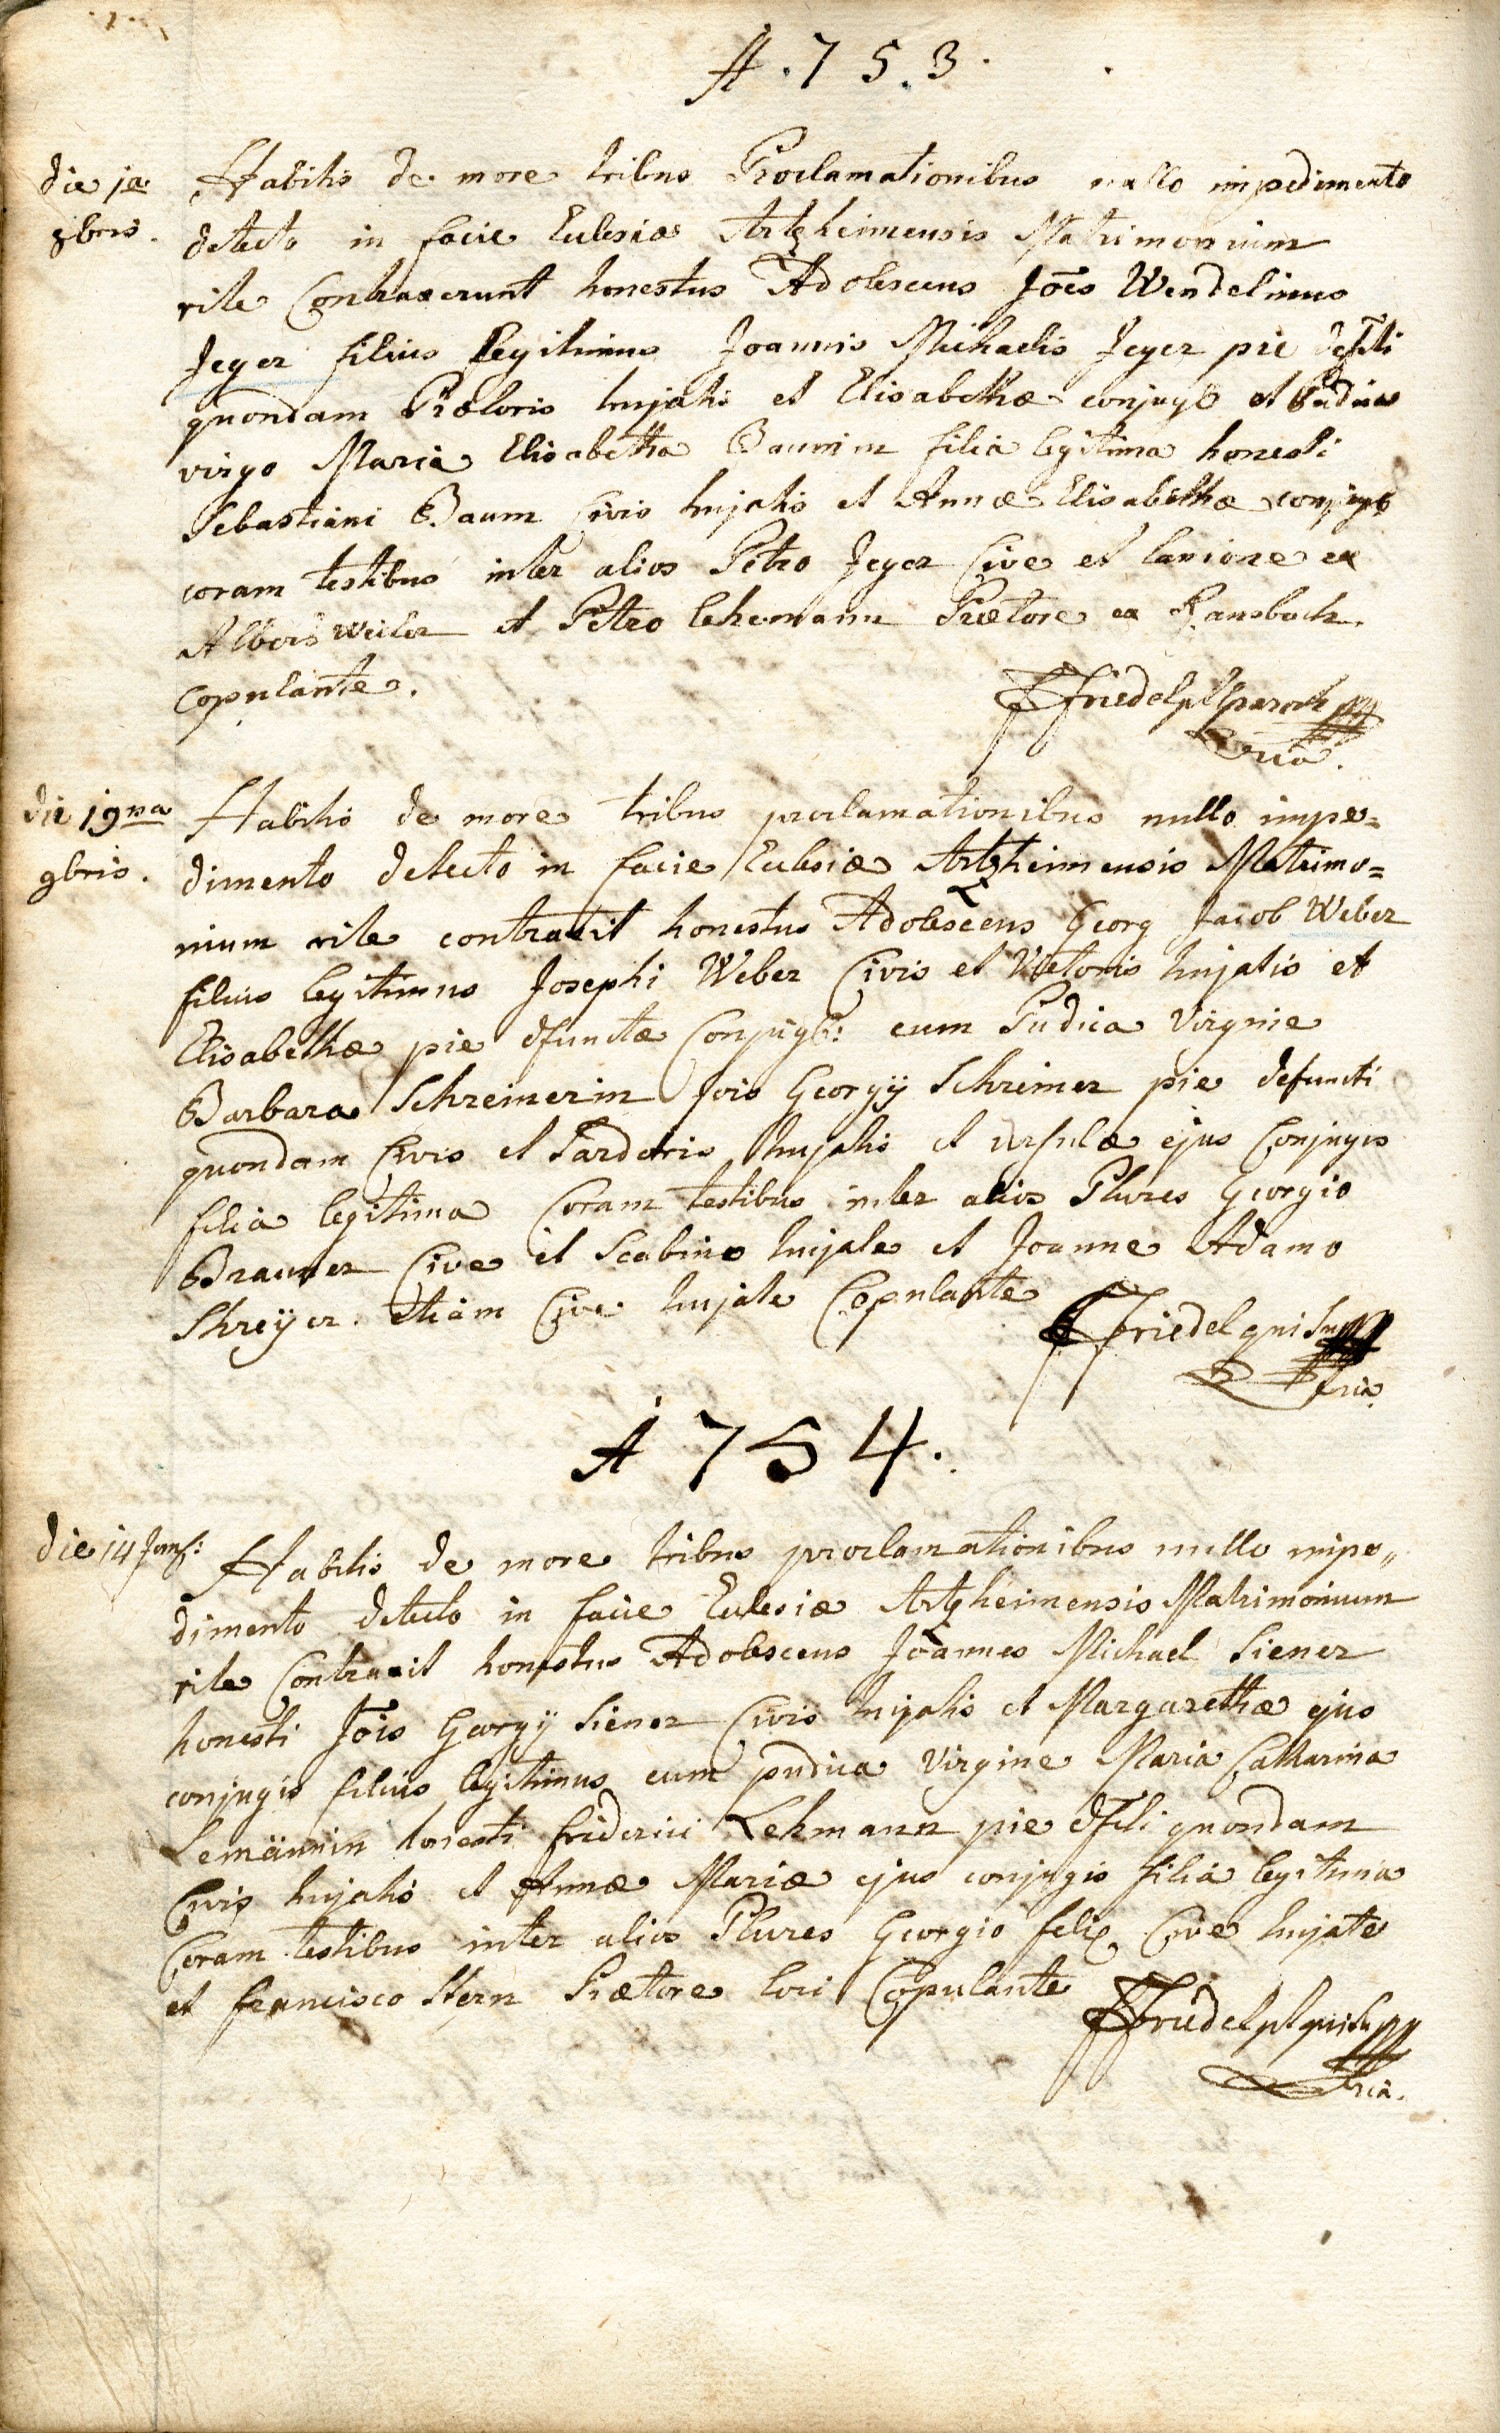 A. 7 5 3.
die 1a
8bris.
Habitis de more tribus Proclamationibus nullo impedimento
detecto in facie Eclesiae Artzheimensis Matrimonium
rite Contraxerunt honestus Adolescens Jōes Wendelinus
Jeger filius legitimus Joannis Michaelis Jeger pie defti
quondam Praetoris hujatis et Elisabethae conjugū et Pudica
virgo Maria Elisabetha Baumin filia legitima honesti
Sebastiani Baum Civis hujatis et Annae Elisabethae conjugū
coram testibus inter alios Petro Jeger Cive et lanione ex
Albersweiler et Petro lehemann Praetore ex Ransbach.
Copulante.
Friedel pl paroch
mpria.
die 19na
9bris.
Habitis de more tribus proclamationibus nullo impe=
dimento detecto in facie Eclesiae Artzheimensis Matrimo=
nium rite contraxit honestus Adolescens Georg Jacob Weber
filius legitimus Josephi Weber Civis et Vietoris hujatis et
Elisabethae pie dfunctae Conjug: cum Pudica Virgine
Barbara Schreinerin Jois Georgÿ Schreiner pie defuncti
quondam Civis et Sardoris hujatis et ursulae ejus Conjugis
filia legitima Coram testibus inter alios Plures Georgio
Brauner Cive et Scabino hujate et Joanne Adamo
Shreÿer. Etiam Cive hujate Copulante
Friedel qui supra
mpria.
A 7 5 4.
die 14 Janr:
Habitis de more tribus proclamationibus nullo impe„
dimento detecto in facie Eclesiae Artzheimensis Matrimonium
rite Contraxit honestus Adolescens Joannes Michael Siener
honesti Jōis Georgÿ Siener Civis hujatis et Margarethae ejus
conjugis filius legitimus cum pudica Virgine Maria Catharina
Lemännin honesti friderici Lehmann pie dfti quondam
Civis hujatis et Annae Mariae ejus conjugis filia legitima
Coram testibus inter alios Plures Georgio felix Cive hujate
et francisco Stern Praetore loci Copulante
Friedel pl qui supra
mpria.